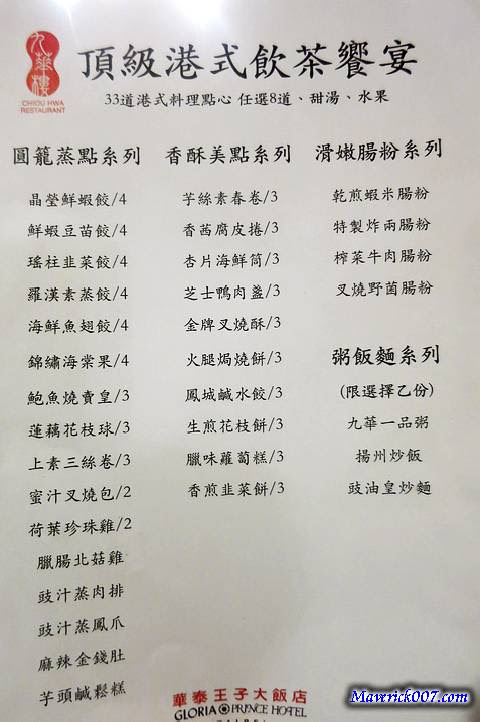 九華樓
CHIOU HWA
RESTAURANT
頂級港式飲茶饗宴
33道港式料理點心 任選8道、甜湯、水果
圓籠蒸點系列
晶瑩鮮蝦餃/4
鮮蝦豆苗餃/4
瑤柱韭菜餃/4
羅漢素蒸餃/4
海鮮魚翅餃/4
錦繡海棠果/4
鮑魚燒賣皇/3
蓮藕花枝球/3
上素三絲卷/3
蜜汁叉燒包/2
荷葉珍珠雞/2
臘腸北菇雞
豉汁蒸肉排
豉汁蒸鳳爪
麻辣金錢肚
芋頭鹹鬆糕
香酥美點系列
芋絲素春卷/3
香茜腐皮捲/3
杏片海鮮筒/3
芝士鴨肉盞/3
金牌叉燒酥/3
火腿焗燒餅/3
鳳城鹹水餃/3
生煎花枝餅/3
臘味蘿蔔糕/3
香煎韭菜餅/3
滑嫩腸粉系列
乾煎蝦米腸粉
特製炸兩腸粉
榨菜牛肉腸粉
叉燒野菌腸粉
粥飯麵系列
(限選擇乙份)
九華一品粥
揚州炒飯
豉油皇炒麵
華泰王子大飯店
GLORIA PRINCE HOTEL
Mawrick007.com